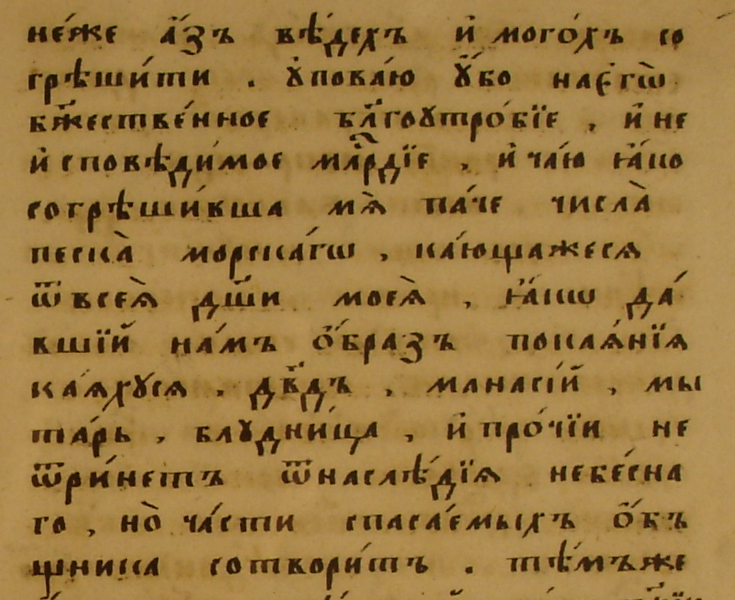 не́же а҆́зъ вѣ́дехъ и҆ мого́хъ со
грѣши́ти . ᲂу҆пова́ю ᲂу҆́бо на є҆гѡ̀
бж҃естве́нное бл҃гоꙋтро́бїе , и҆ не
и҆сповѣди́мое млⷭ҇рдїе , и҆ ча́ю ꙗ҆́ко
согрѣши́вша мѧ̀ па́че числа̀
песка̀ морска́гѡ , ка́ющажесѧ
ѿ всеѧ̀ дш҃и моеѧ̀ , ꙗ҆́кѡ да́
вшїй на́мъ ѻ҆́бразъ покаѧ́нїѧ
ка́ѧхꙋсѧ , дв҃дъ , манасі́й , мы
та́рь , блꙋдни́ца , и҆ про́чїи не
ѿри́нетъ ѿ наслѣ́дїѧ небе́сна
го , но̀ ча́сти спаса́емыхъ ѻ҆́бъ
щника сотвори́тъ . тѣ́мъже